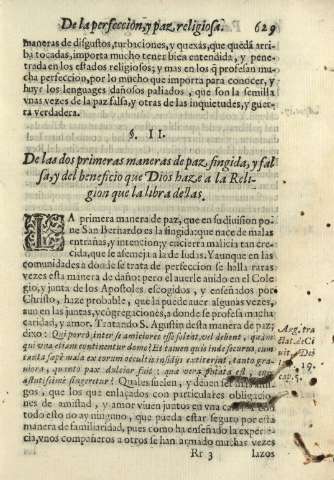 De la perfeccion, y paz, religiosa. 629
maneras de disgustos, turbaciones, y quexas, que quedã arri-
ba tocadas, importa mucho tener bien entendida, y pene-
trada en los estados religiosos; y mas en los q̃ profesan mu-
cha perfeccion, por lo mucho que importa para conocer, y
huyr los lenguages dañosos paliados, que son la semilla
vnas vezes de la paz falsa, y otras de las inquietudes, y guer-
ra verdadera.
§. II.
De las dos primeras maneras de paz, fingida, y fal
sa, y del beneficio que Dios haze a la Reli-
gion que la libra dellas.
LA primera manera de paz, que en su diuision po-
ne San Bernardo es la fingida: que nace de malas
entrañas, y intencion; y encierra malicia tan cre-
cida, que se asemeja a la de Iudas. Y aunque en las
comunidades a donde se trata de perfeccion se halla raras
vezes esta manera de daño: pero el auerle auido en el Cole-
gio, y junta de los Apostoles escogidos, y enseñados por
Christo, haze probable, que la puede auer algunas vezes,
aun en las juntas, y cõgregaciones, a donde se profesa mucha
caridad, y amor. Tratando S. Agustin desta manera de paz;
dixo: Qui porrò inter se amiciores esse solent, vel debent, quàm
qui vna etiam continentur domo? Et tamen quis inde securus, cum
tanta sæpè mala ex eorum occultis insidijs extiterint, tanto gra-
uiora, quanto pax dulcior fuit: quæ vera putata est, cum
astutissimè fingeretur? Quales suelen, y deuen ser
gos, que los que enlaçados con particulares obligacio-
nes de amistad, y amor viuen juntos en vna casa? con
todo esto no ay ninguno, que pueda estar seguro por esta
manera de familiaridad, pues como ha enseñado la experiẽ-
cia, vnos compañeros a otros se han armado muchas vezes
Rr 3 lazos
Aug. tra
cap. 5.